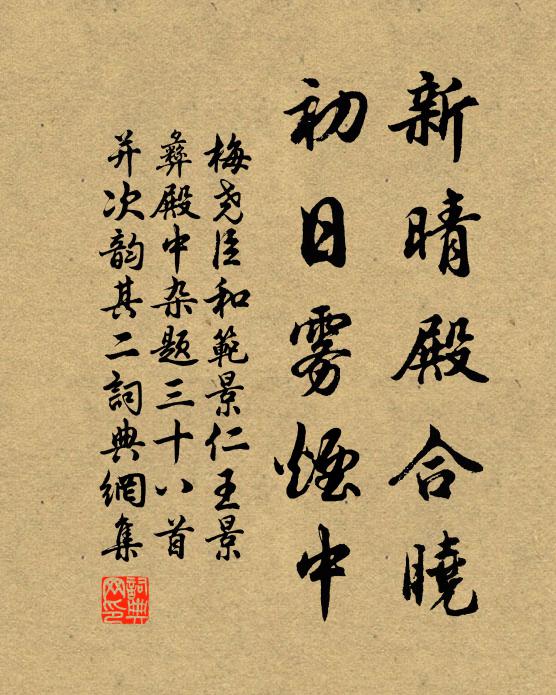 新晴殿合曉
初日雾煙中
梅尧臣和範景仁王景
彝殿中杂题三十八首
并次韵其二詞典網集
詞典网印